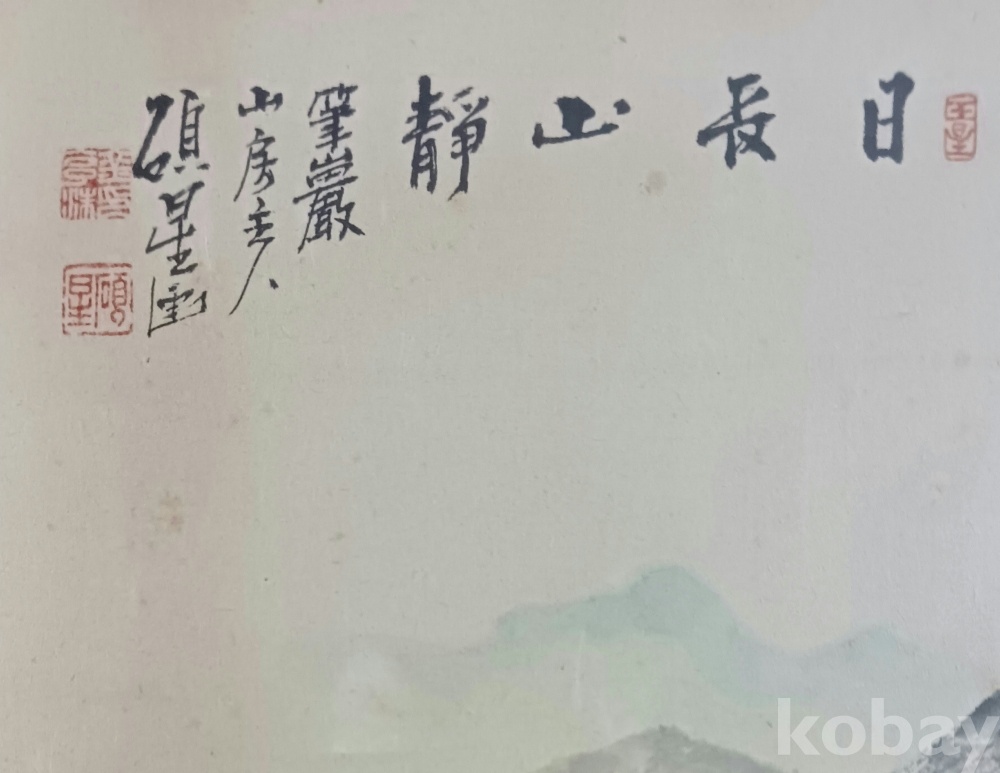 日長山靜
筆巖
山房主人
碩星畵
碩星
kobay